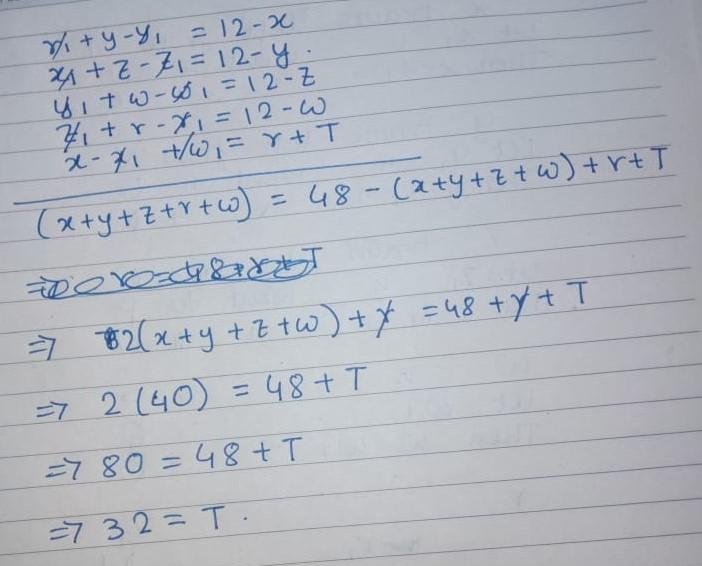 r₁ + y - y₁ = 12 - x
x₁ + z - z₁ = 12 - y.
y₁ + w - w₁ = 12 - z
z₁ + r - r₁ = 12 - w
x - x₁ + w₁ = r + T
(x+y+z+r+w) = 48 - (x+y+z+w) + r + T
⇒ 2(x+y+z+w) + r = 48 + r + T
⇒ 2(40) = 48 + T
⇒ 80 = 48 + T
⇒ 32 = T.